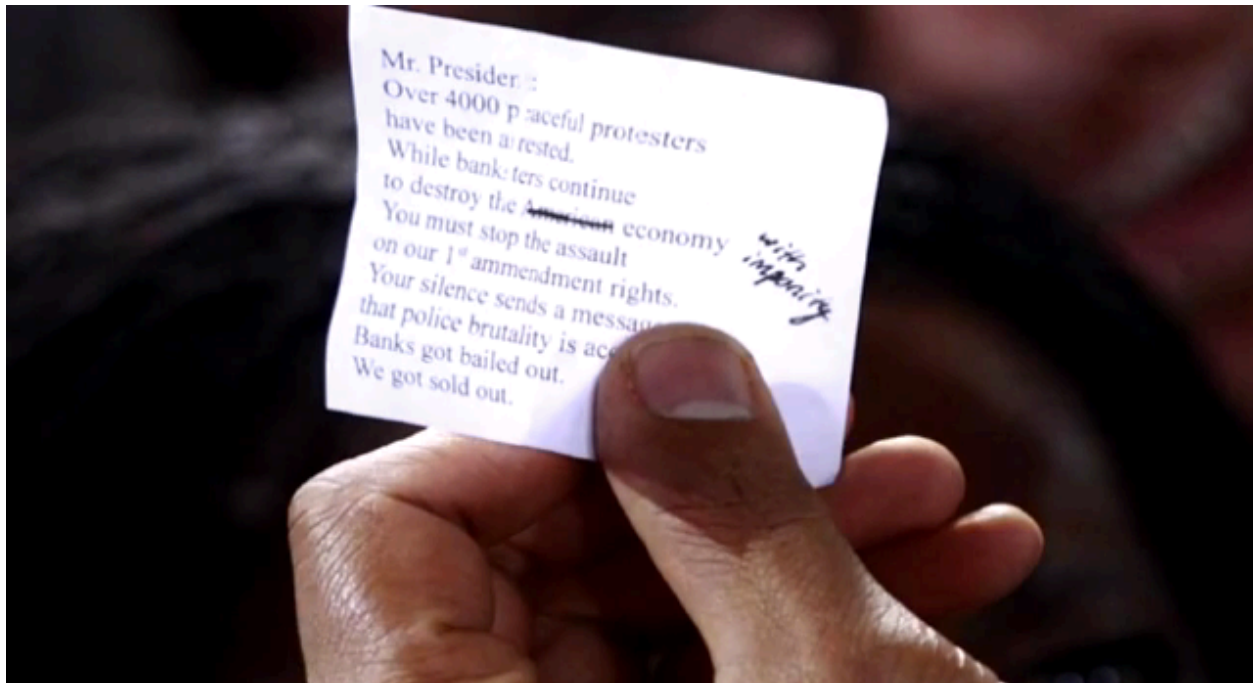 Mr. President:
Over 4000 peaceful protesters
have been arrested.
While banksters continue
to destroy the American economy with
impunity
You must stop the assault
on our 1st ammendment rights.
Your silence sends a message
that police brutality is acc
Banks got bailed out.
We got sold out.